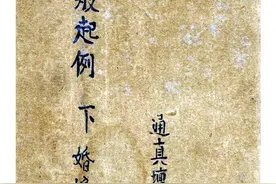 起例 下 婚
通真壇